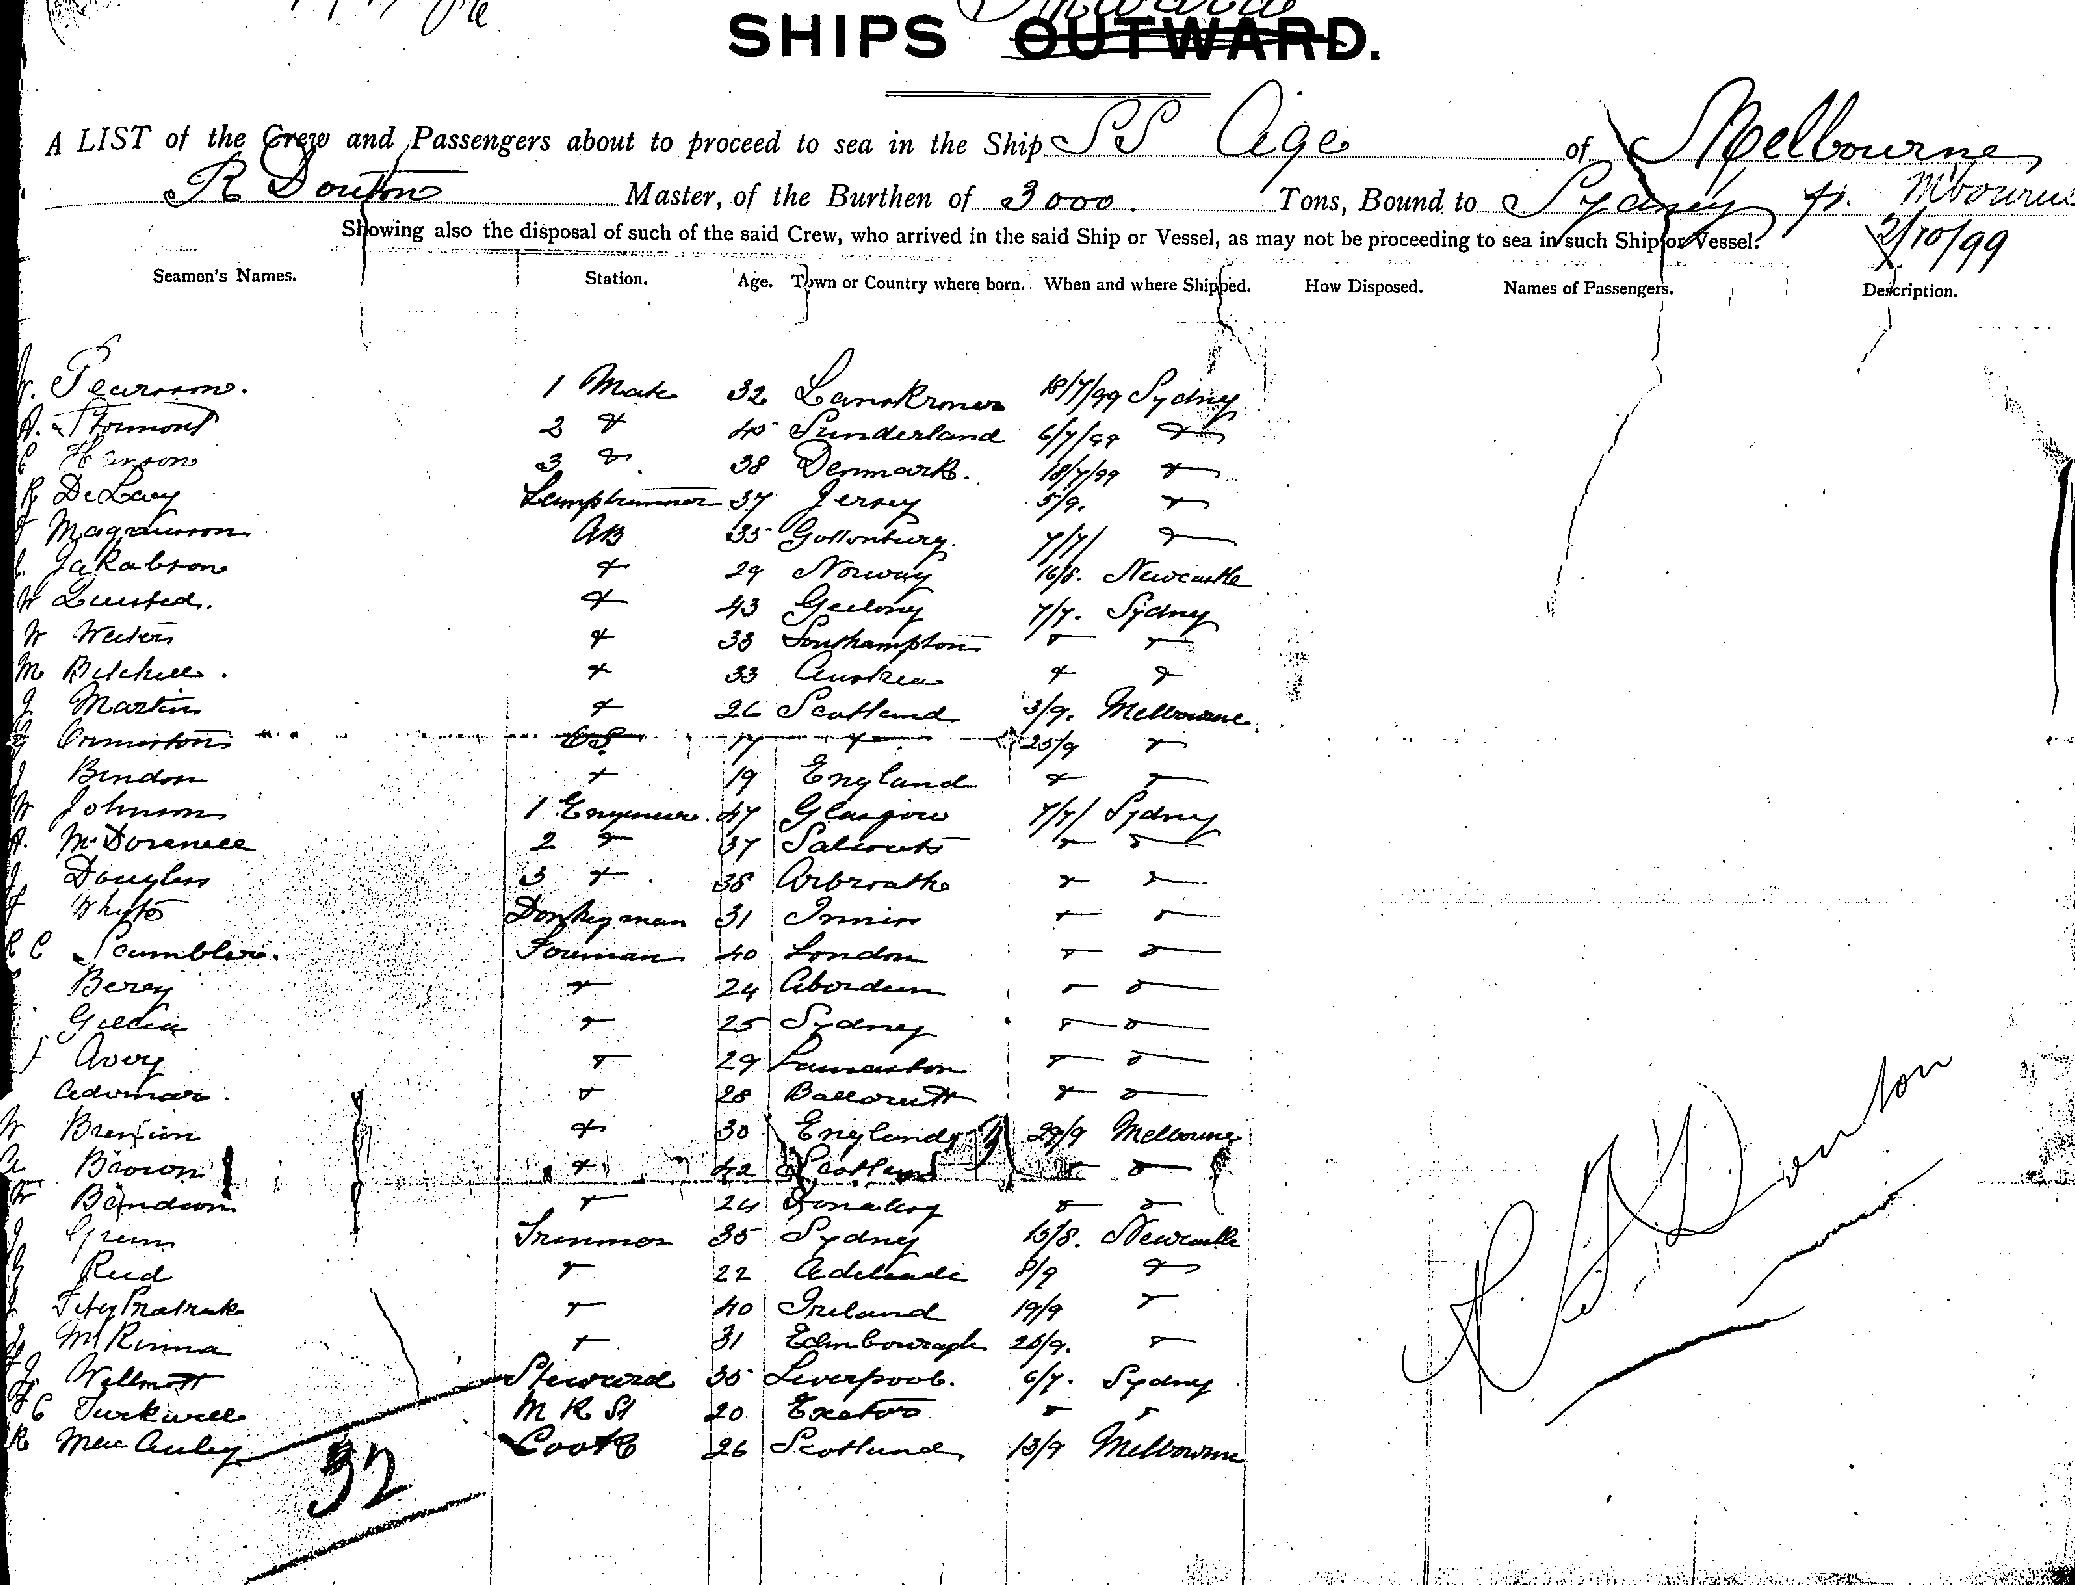 Inwards
SHIPS OUTWARD.
A LIST of the Crew and Passengers about to proceed to sea in the Ship SS Age of Melbourne
R Douton Master, of the Burthen of 3000. Tons, Bound to Sydney fr. M'bourne
Showing also the disposal of such of the said Crew, who arrived in the said Ship or Vessel, as may not be proceeding to sea in such Ship or Vessel. 2/10/99
Seamen's Names. Station. Age. Town or Country where born. When and where Shipped. How Disposed. Names of Passengers. Description.
Pearsson. 1 Mate 32 Lanskrona 18/7/99 Sydney
A. Stormont 2 " 45 Sunderland 6/7/99 "
C Hanson 3 " 38 Denmark. 18/7/99 "
DeLacy Lamptrimmer 37 Jersey 5/9. "
Magnusson AB 35 Gottenburg. 7/7/ "
Jakabson " 29 Norway 16/8. Newcastle
W Lusted. " 43 Geelong 7/7. Sydney
W Waters " 33 Southampton " "
M Bitchell. " 33 Austria " "
J Martin " 26 Scotland 3/9. Melbourne.
Ormiston OS 17 " 25/9 "
J Bindon " 19 England " "
W Johnson 1 Engineer. 47 Glasgow 7/7/ Sydney
A. McDonnell 2 " 37 Salcoats " "
J Douglass 3 " 38 Arbroath " "
Whyte Donkeyman 31 Irvine " "
C Scambler. Fireman 40 London " "
Berry " 24 Aberdeen " "
" 25 Sydney " "
Avery " 29 Launceston " "
" 28 Ballarat " "
W " 30 England 29/9 Melbourne
Brown " 42 Scotland " "
W " 24 " "
J Green Trimmer 35 Sydney 13/8. Newcastle
Reid " 22 Adelaide 8/9 "
J FitzPatrick " 40 Ireland 19/9 "
McKinna " 31 Edinbouragh 20/9. "
J Willmott Steward 35 Liverpool. 6/7. Sydney
C Turkwell M R St 20 Exeter " "
R MacAuley Cook 26 Scotland 13/9 Melbourne
32
Douton